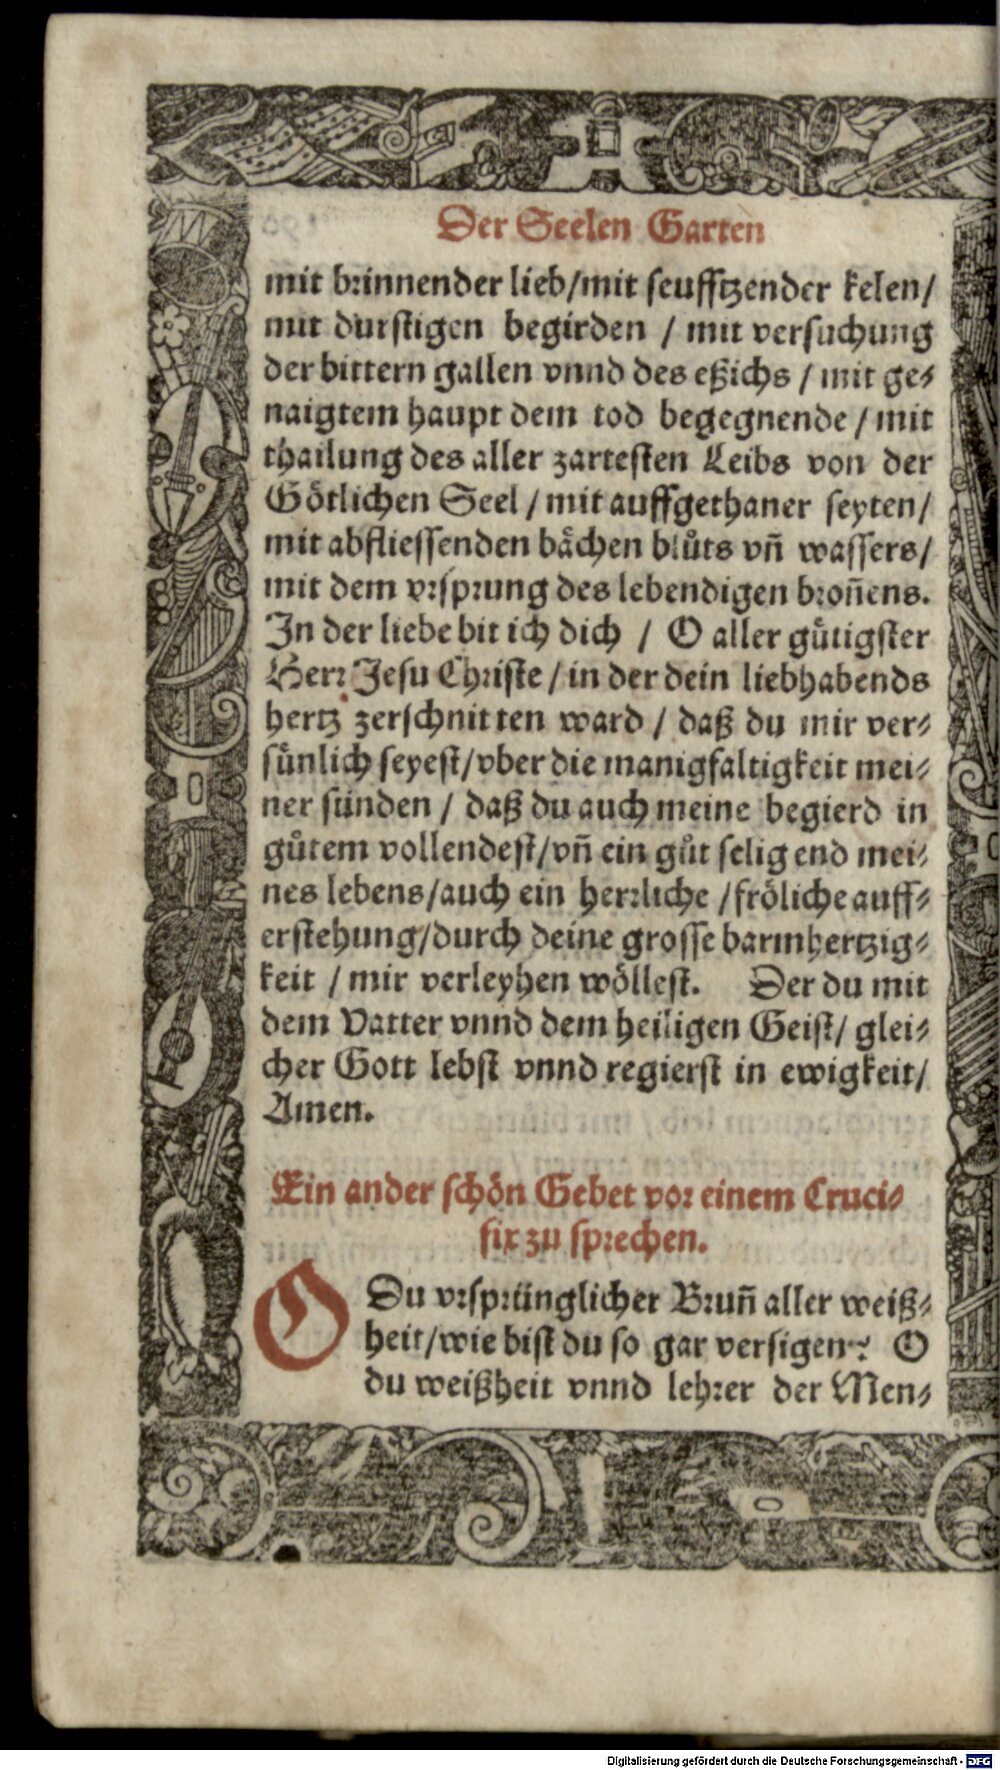 Der Seelen Garten
mit brinnender lieb/mit seufftzender kelen/
mit durstigen begirden / mit versuchung
der bittern gallen vnnd des eßichs / mit ge⸗
naigtem haupt dem tod begegnende / mit
thailung des aller zartesten Leibs von der
Götlichen Seel / mit auffgethaner seyten/
mit abfliessenden bächen blůts vñ wassers/
mit dem vrsprung des lebendigen broñens.
In der liebe bit ich dich / O aller gütigster
Herr Jesu Christe / in der dein liebhabends
hertz zerschnitten ward / daß du mir ver⸗
sünlich seyest/vber die manigfaltigkeit mei⸗
ner sünden / daß du auch meine begierd in
gůtem vollendest/vñ ein gůt selig end mei⸗
nes lebens/auch ein herrliche /fröliche auff⸗
erstehung/durch deine grosse barmhertzig⸗
keit / mir verleyhen wöllest. Der du mit
dem Vatter vnnd dem heiligen Geist/ glei⸗
cher Gott lebst vnnd regierst in ewigkeit/
Amen.
Ein ander schön Gebet vor einem Cruci⸗
fix zu sprechen.
O Du vrsprünglicher Bruñ aller weiß⸗
heit/wie bist du so gar versigen? O
du weißheit vnnd lehrer der Men⸗
Digitalisierung gefördert durch die Deutsche Forschungsgemeinschaft - DFG